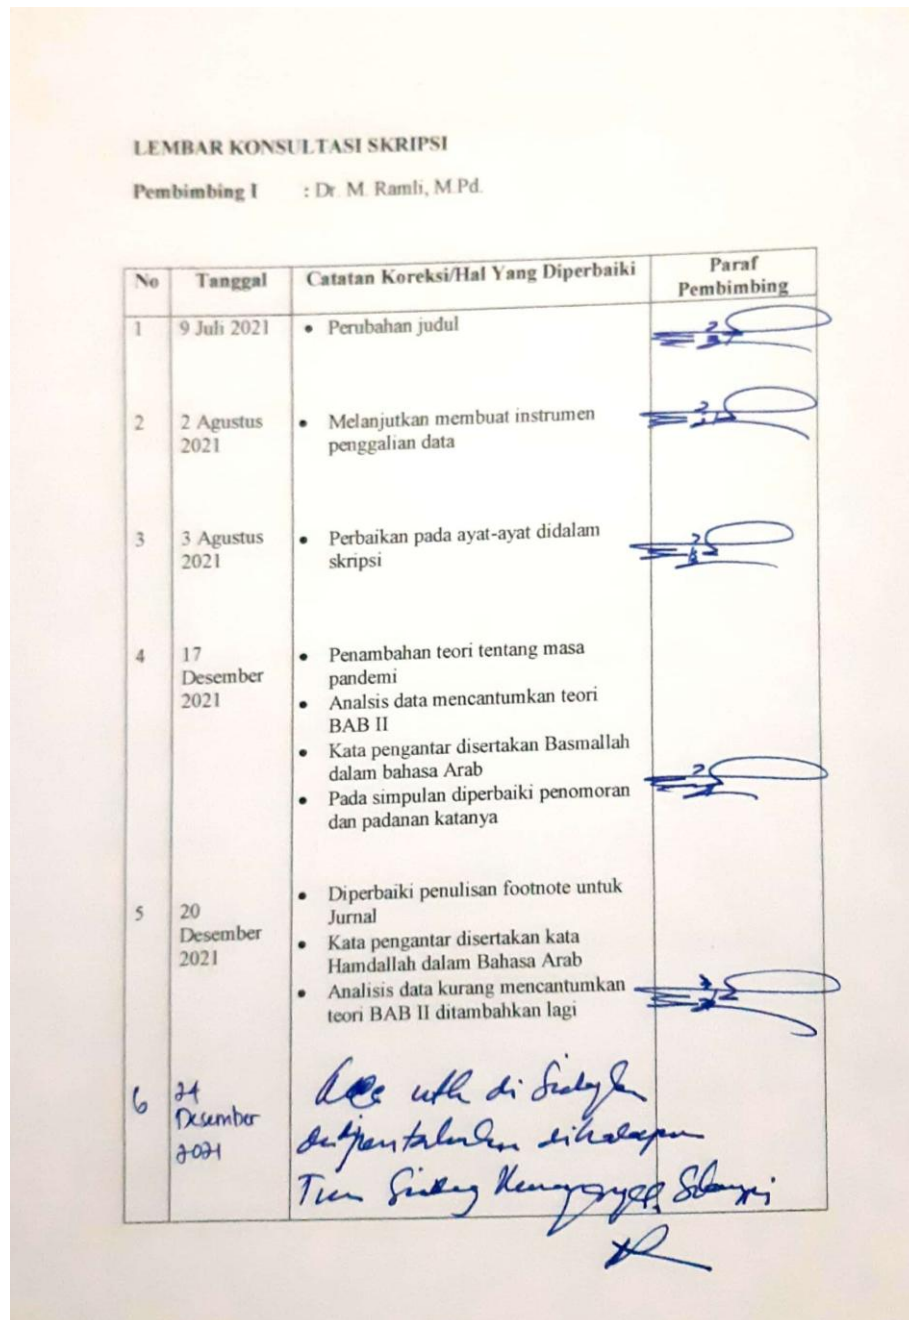 LEMBAR KONSULTASI SKRIPSI
Pembimbing I : Dr. M. Ramli, M.Pd.
No Tanggal Catatan Koreksi/Hal Yang Diperbaiki Paraf
Pembimbing
1 9 Juli 2021 • Perubahan judul
2 2 Agustus • Melanjutkan membuat instrumen
2021 penggalian data
3 3 Agustus • Perbaikan pada ayat-ayat didalam
2021 skripsi
4 17 • Penambahan teori tentang masa
Desember pandemi
2021 • Analsis data mencantumkan teori
BAB II
• Kata pengantar disertakan Basmallah
dalam bahasa Arab
• Pada simpulan diperbaiki penomoran
dan padanan katanya
• Diperbaiki penulisan footnote untuk
5 20 Jurnal
Desember • Kata pengantar disertakan kata
2021 Hamdallah dalam Bahasa Arab
• Analisis data kurang mencantumkan
teori BAB II ditambahkan lagi
6 24 di
Desember dihadapan
2021 Sidang